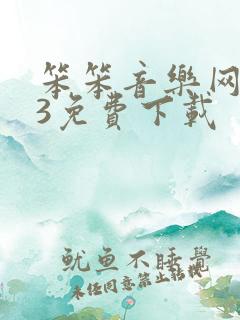 笨笨音樂网
3免費下载
鱿鱼不睡覺
未经同意禁止转载